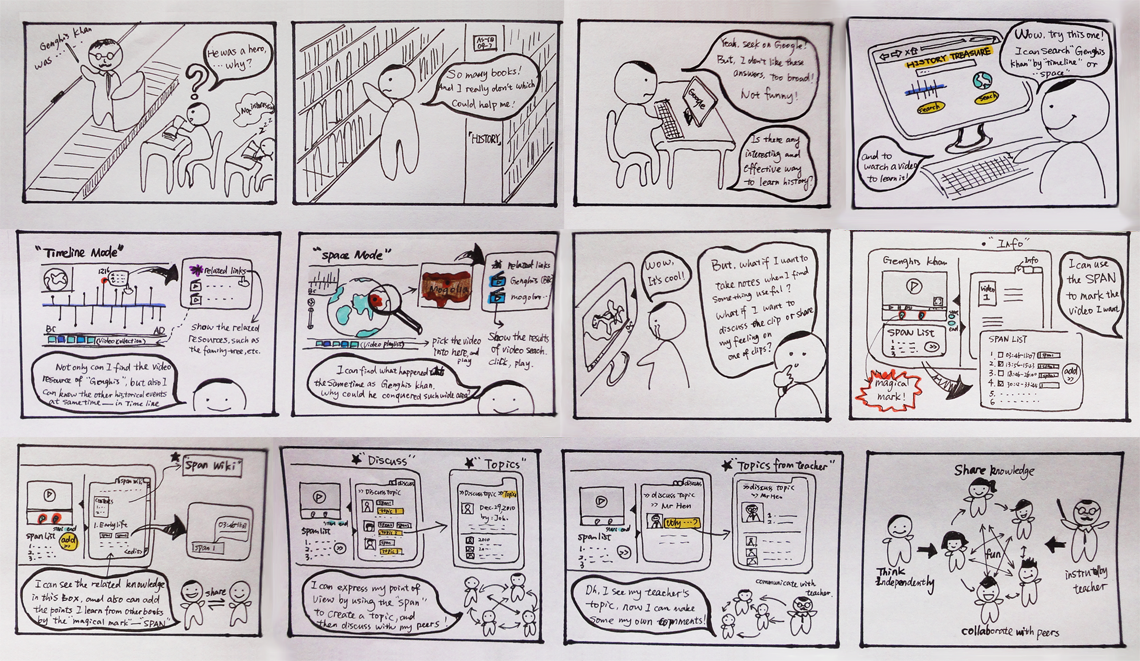 Genghis Khan
was ......
He was a hero,
... why?
?
zzz
A5-10
09-7
So many books!
And I really don't which
Could help me!
"HISTORY"
Yeah, seek on Google!
But, I don't like these
answers, too broad!
Not funny!
Google
Is there any
interesting and
effective way
to learn history?
HISTORY TREASURE
search
search
Wow, try this one!
I can search "Genghis
Khan" by "timeline" or
"space"
and to
watch a video
to learn it!
"Timeline Mode"
1216
related links
BC
AD
(video collection)
show the related
resources, such as
the family-tree, etc.
Not only can I find the video
resource of "Genghis", but also I
can know the other historical events
at same time — in Time line
"space Mode"
Mogolia
related links
Genghis (BBC)
mogolia..
BC
(Video playlist)
pick the video
into here, and
play
Show the results
of video search.
click, play.
I can find what happened
the same time as Genghis Khan.
Why could he conquered such wide area?
Wow,
It's cool!
But, what if I want to
take notes when I find
something useful?
what if I want to
discuss the clip or share
my feeling on
one of clips?
"Info"
Genghis Khan
Info
video
1
start
end
SPAN LIST
1.
2.
3.
>>
magical
mark!
SPAN LIST
1.
2.
3.
4.
5.
6
add
>>
I can use
the SPAN
to mark the
video I want
"Span Wiki"
Span Wiki
1. Early life
<edit>
start end
span list
1.
2.
3.
add
>>
span 1
I can see the related knowledge
in this box, and also can add
the points I learn from other books
by the "magical mark" — SPAN"
share
"Discuss"
discuss
>> Discuss topic
span1
topic 1
span list
1.
2.
3.
>>
"Topics"
>> Discuss topic >> Topic
Dec. 29, 2010
by: Job.
2010
I can express my point of
view by using the "span"
to create a topic, and
then discuss with my peers!
"Topics from teacher"
discuss
>> discuss topic
>> Mr Hen
Why ...?
span list
1.
2.
3
>>
>> discuss topic
>> Mr Hen
1.
2.
communicate with
teacher.
Oh, I see my teacher's
topic, now I can make
some my own comments!
Share knowledge
Think
Independently
fun
instructed by
teacher
collaborate with peers